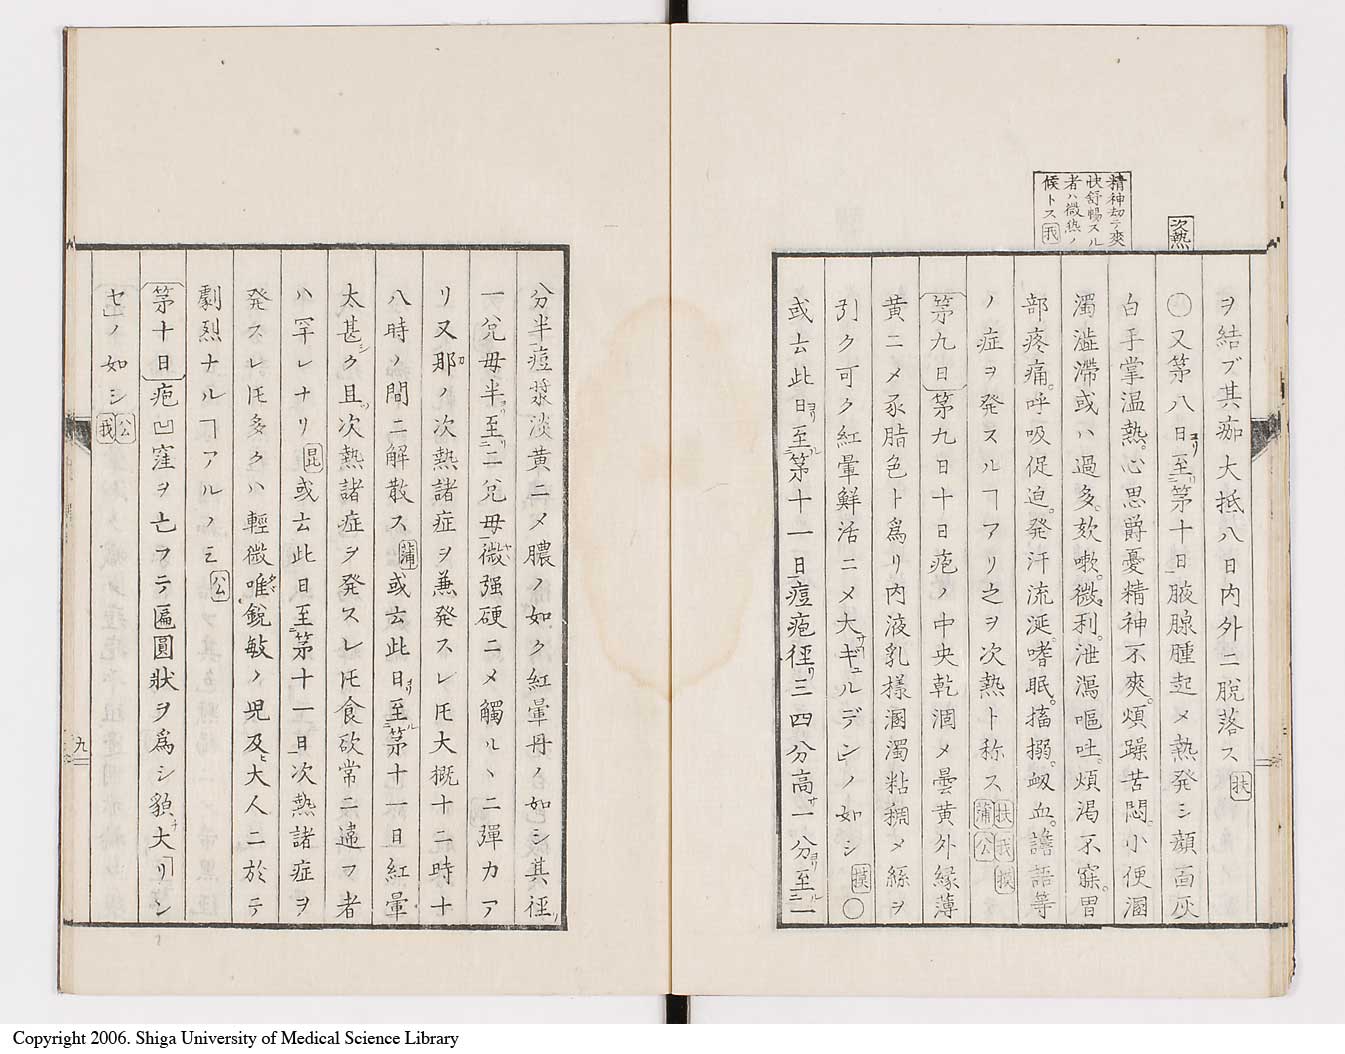 次熱
精神却テ爽
快舒暢スル
者ハ微熱ノ
候トス 我
ヲ結ブ其痂大抵八日内外ニ脱落ス 扶
〇又第八日ヨリ至ル第十日ニ腋腺腫起メ熱発シ顔面灰
白手掌温熱。心思爵憂精神不爽。煩躁苦悶。小便溷
濁澁滞或ハ過多。欬嗽。微利。泄瀉嘔吐。煩渇不寐。胃
部疼痛。呼吸促迫。発汗流涎。嗜眠。搐搦。衂血。譫語等
ノ症ヲ発スルヿアリ之ヲ次熱ト称ス 扶我摸蒲公
第九日 第九日十日疱ノ中央乾涸メ曇黄外縁薄
黄ニメ豕脂色ト為リ内液乳樣溷濁粘稠メ絲ヲ
引ク可ク紅暈鮮活ニメ大サギュルデンノ如シ 摸 〇
或云此日ヨリ至ル第十一日ニ痘疱徑リ三四分高サ一分ヨリ至ル一ニ
分半ニ痘漿淡黄ニメ膿ノ如ク紅暈丹ノ如シ其徑リ
一兊母半ヨリ至リ二兊母ニ微ヤヽ强硬ニメ觸ルヽニ彈力ア
リ又那カノ次熱諸症ヲ兼発スレ𪜈大概十二時十
八時ノ間ニ解散ス 蒲 或云此日ヨリ至ル第十一日ニ紅暈
太甚シク且ツ次熱諸症ヲ発スレ𪜈食欲常ニ違フ者
ハ罕レナリ 昆 或云此日至第十一日ニ次熱諸症ヲ
発スレ𪜈多クハ輕微唯タヽ鋭敏ノ児及ヒ大人ニ於テ
劇烈ナルヿアルノミ 公
第十日 疱凹窪ヲ亡フテ匾圓狀ヲ爲シ貌チ大リン
セノ如シ 公我
九
Copyright 2006. Shiga University of Medical Science Library